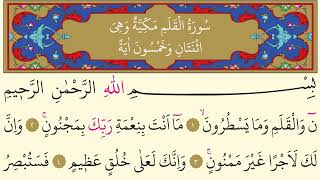 سُورَةُ الْقَلَمِ مَكِّيَّةٌ وَهِيَ
اثْنَتَانِ وَخَمْسُونَ اٰيَةً
بِسْــــمِ اللّٰهِ الرَّحْمٰنِ الرَّحٖيمِ
نٓ وَالْقَلَمِ وَمَا يَسْطُرُونَۙ ﴿١﴾ مَٓا اَنْتَ بِنِعْمَةِ رَبِّكَ بِمَجْنُونٍۚ ﴿٢﴾ وَاِنَّ
لَكَ لَاَجْرًا غَيْرَ مَمْنُونٍۚ ﴿٣﴾ وَاِنَّكَ لَعَلٰى خُلُقٍ عَظٖيمٍ ﴿٤﴾ فَسَتُبْصِرُ